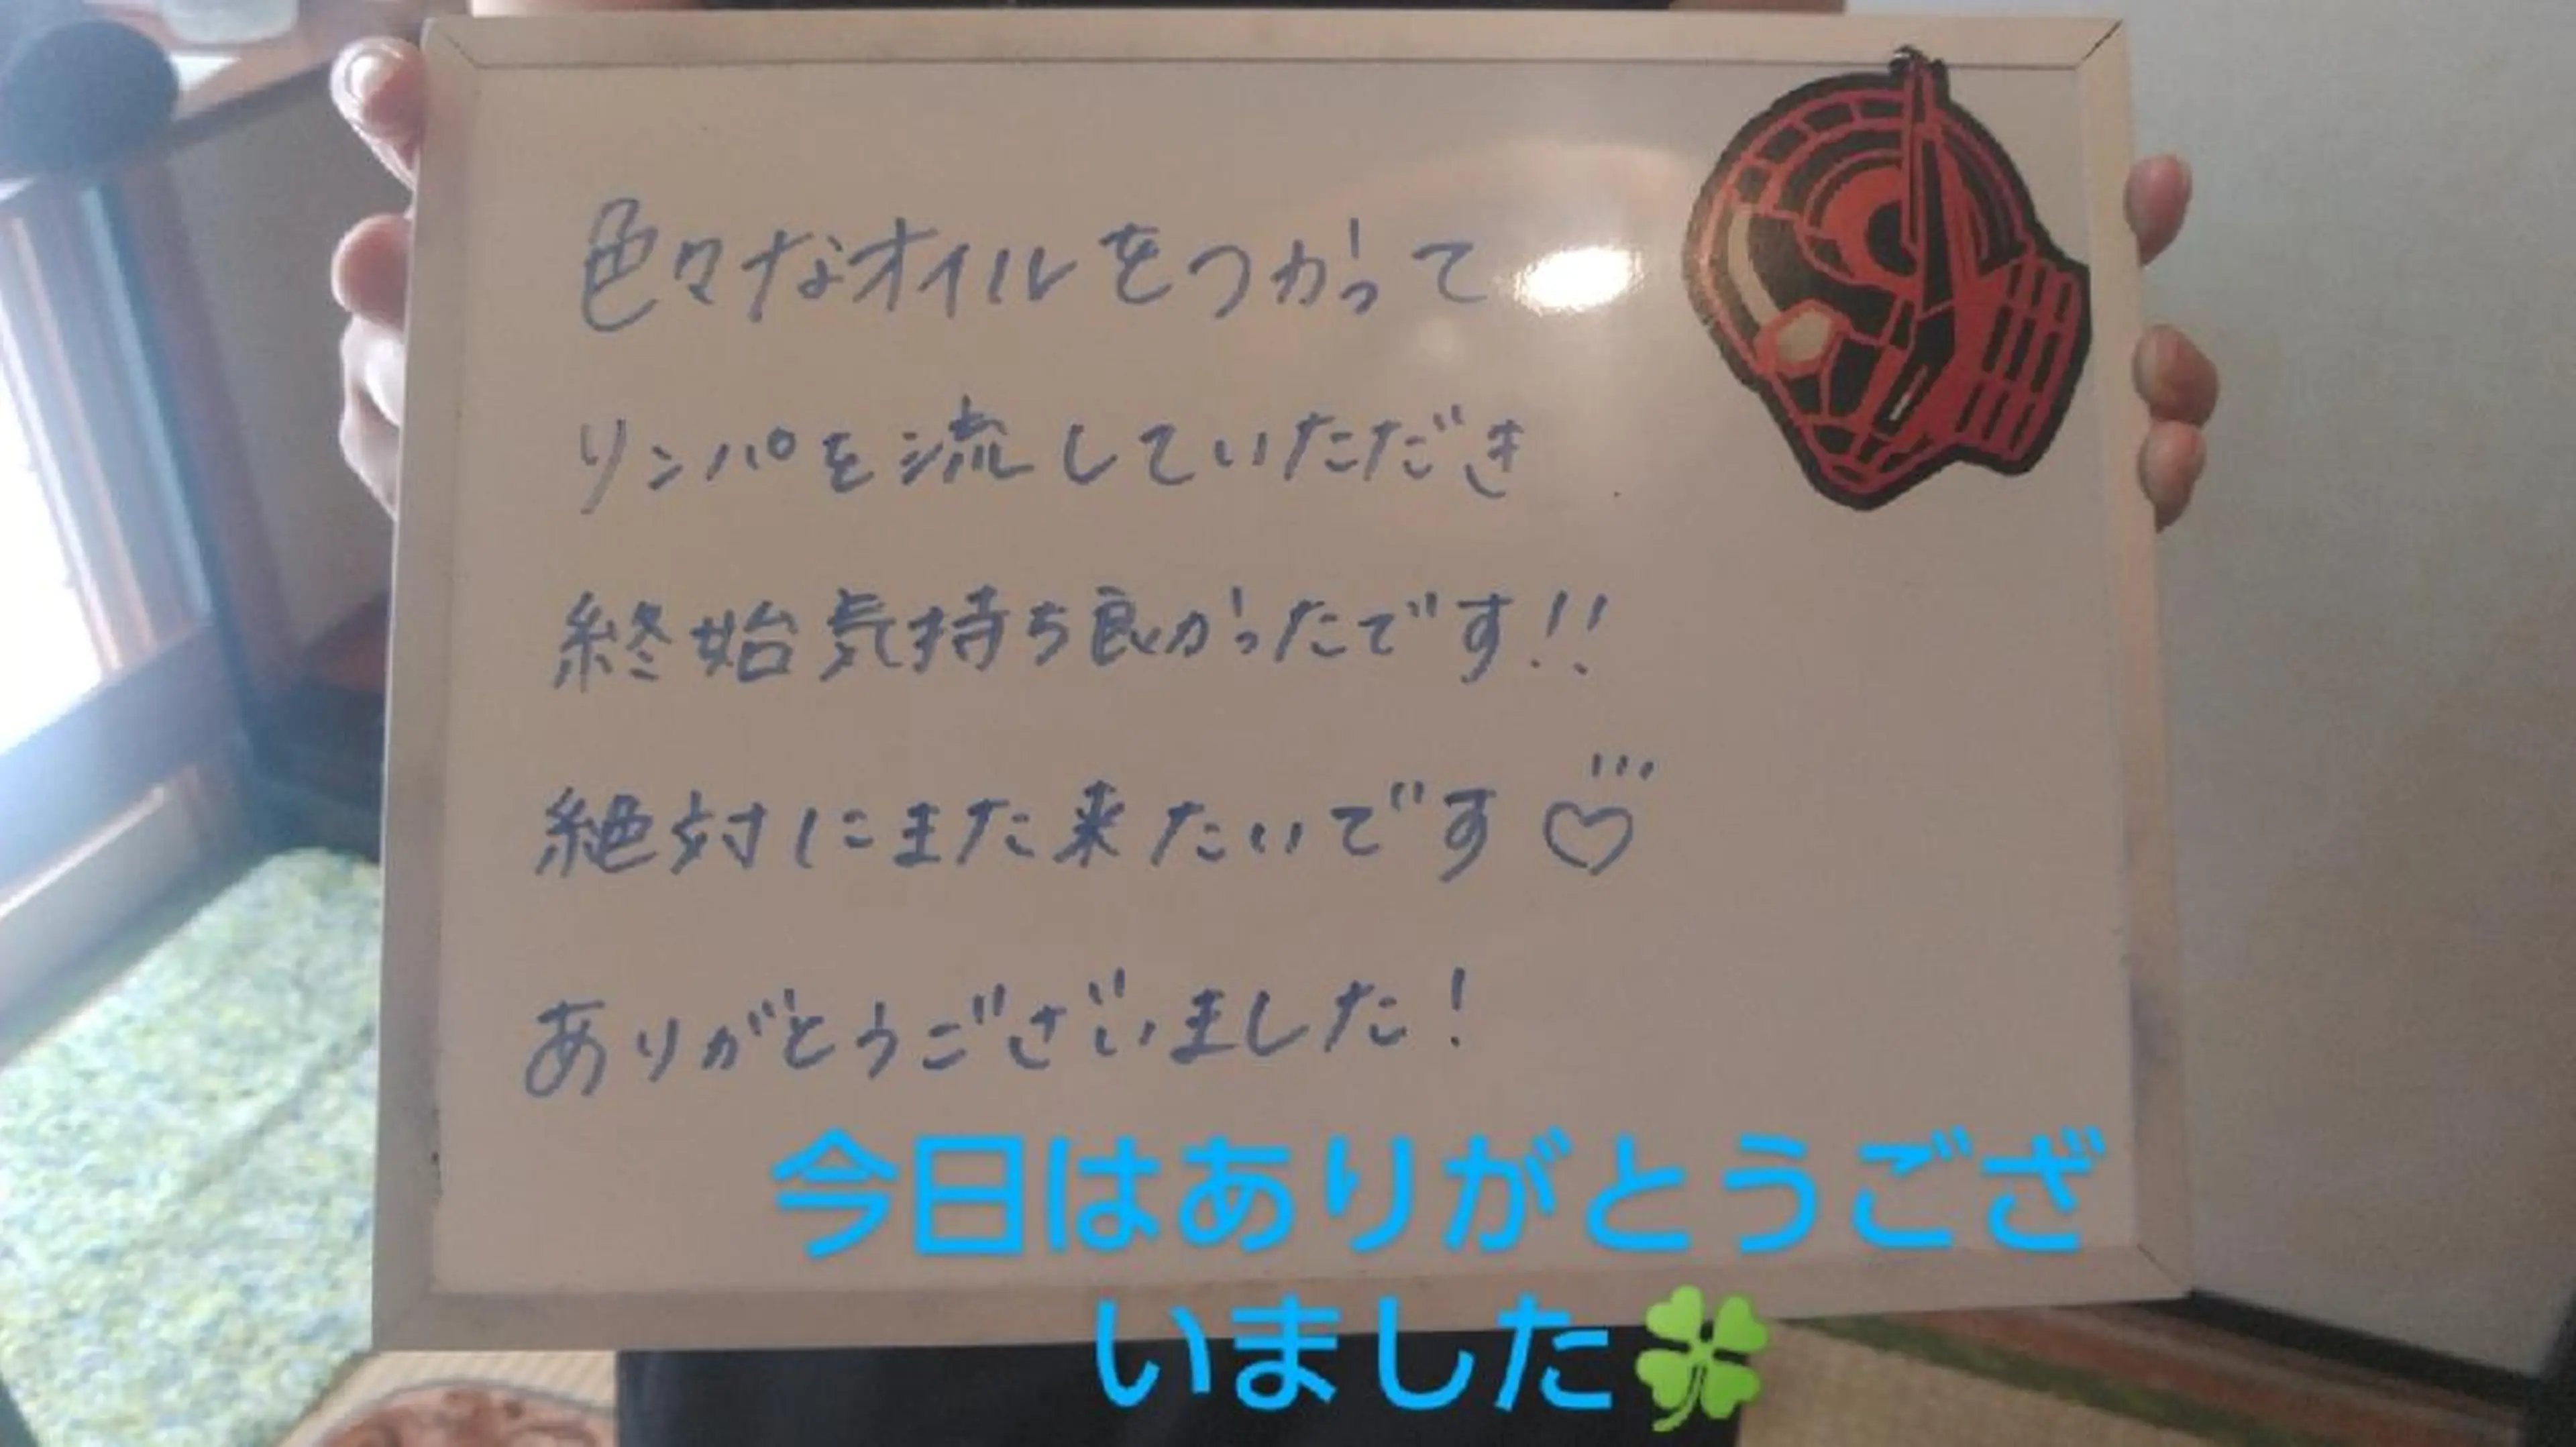 色々なオイルをつかって
リンパを流していただき
終始気持ち良かったです!!
絶対にまた来たいです♡
ありがとうございました!
今日はありがとうござ
いました🍀